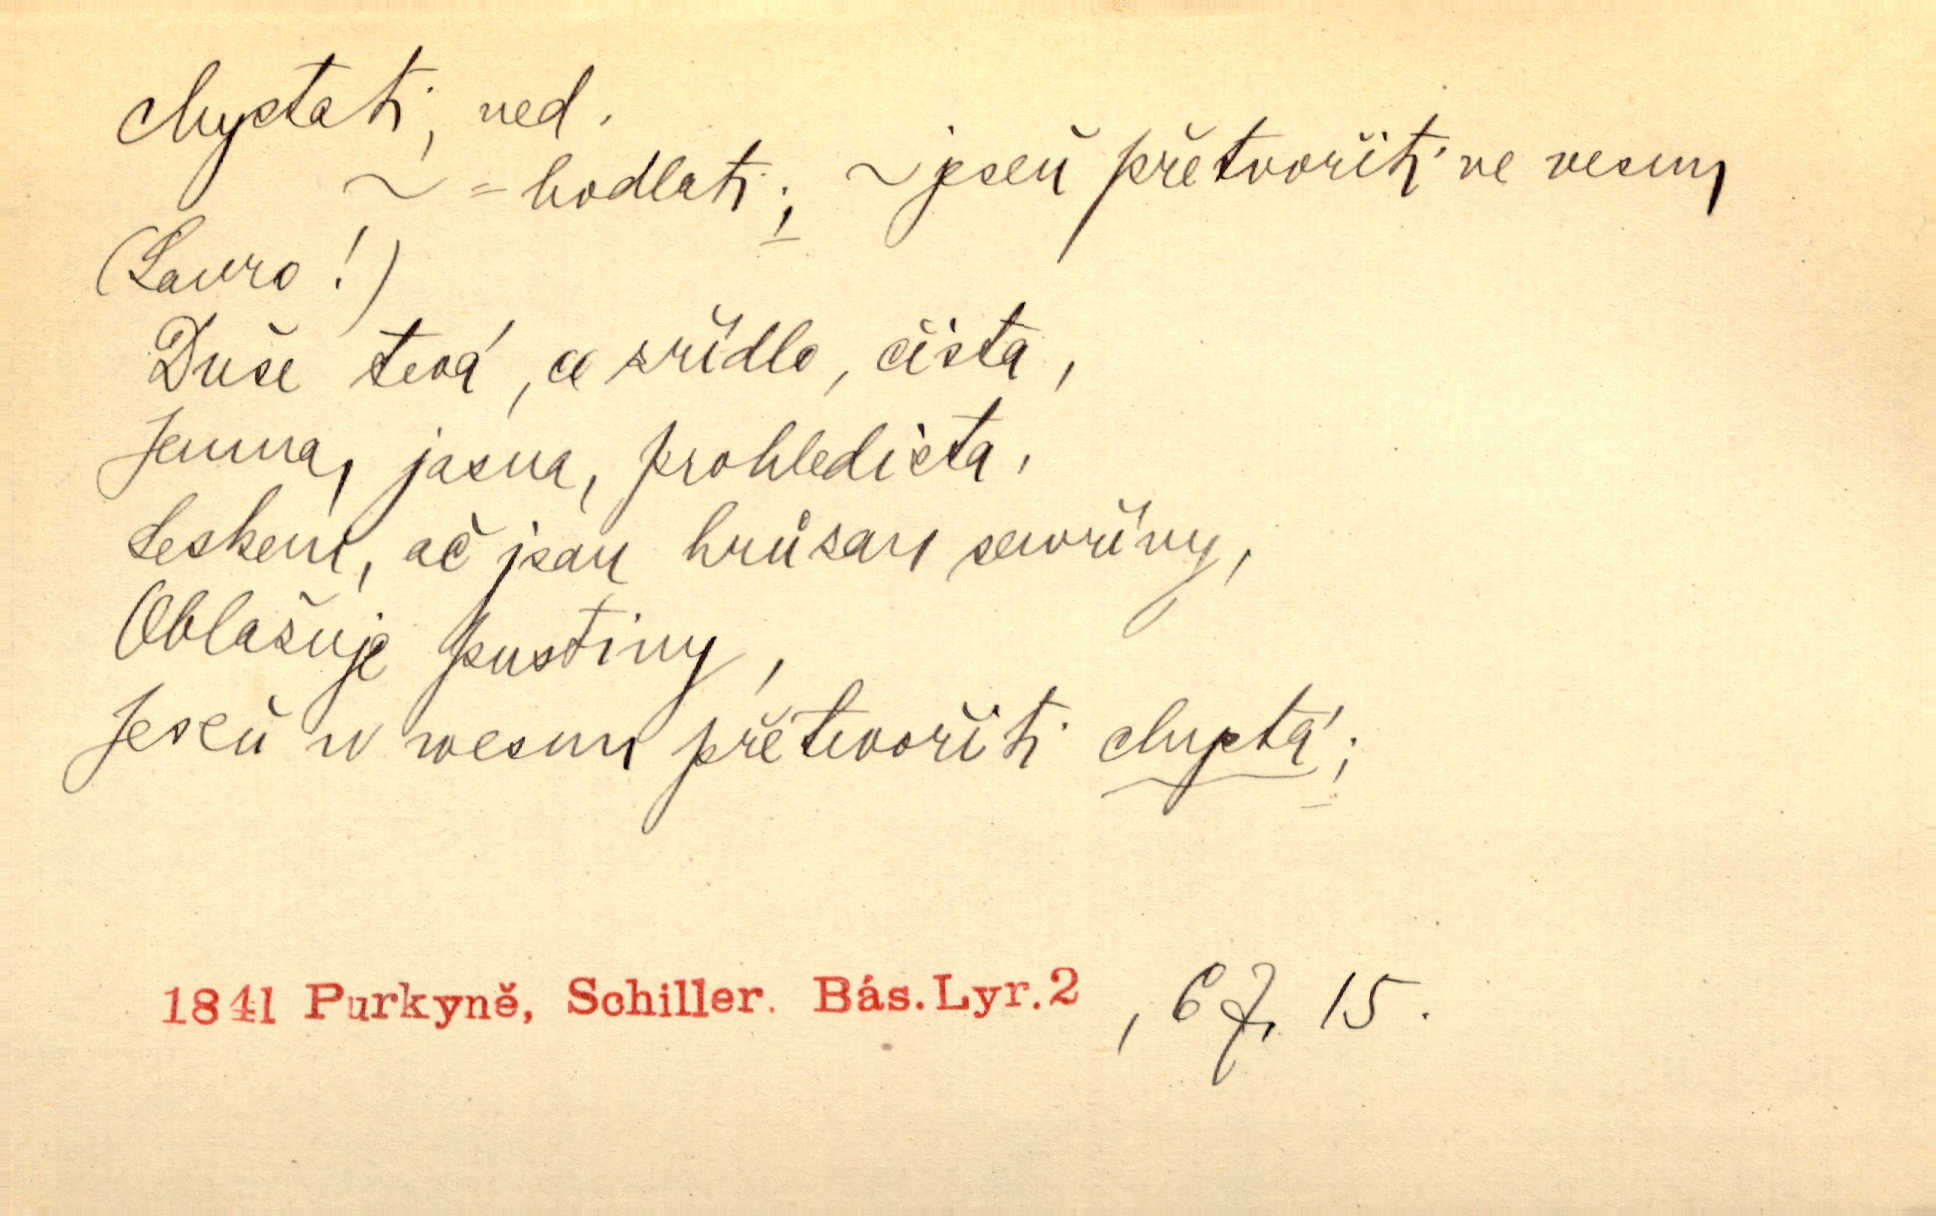 chystati, ned.
~ = hodlati; ~ jeseň přetvořiti ve vesnu
(Lauro!)
Duše tvá, co zřídlo, čista,
Jemna, jasna, prohledista,
Leskem, ač jsau hrůzau sewřiny,
Oblašuje pustiny,
Jeseň w wesnu přetwořiti chystá;
1841 Purkyně, Schiller. Bás. Lyr. 2, 67, 15.